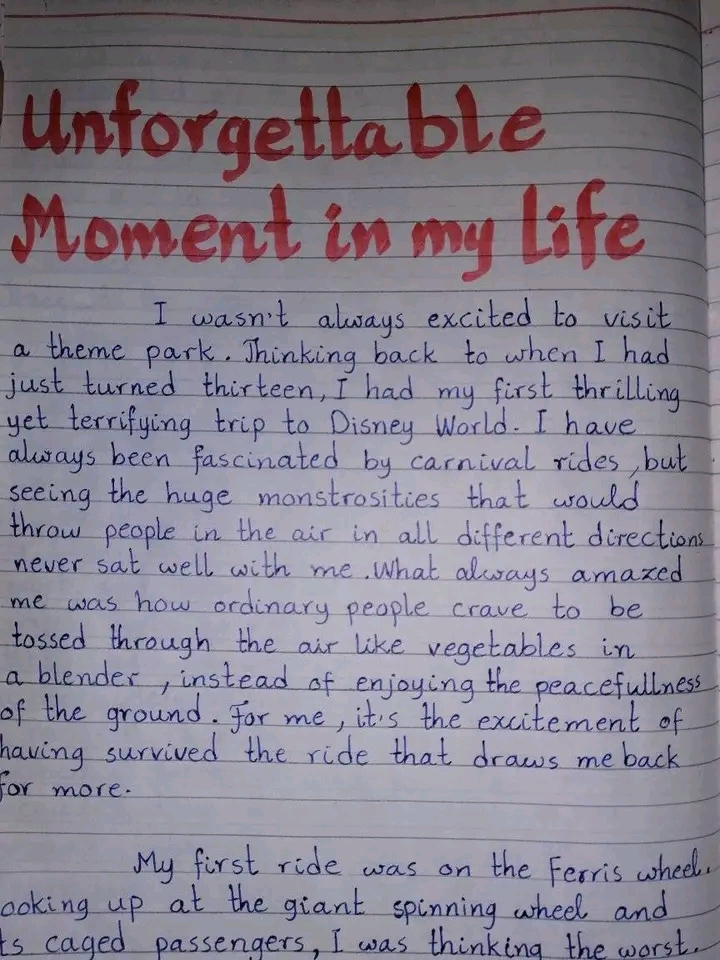 Unforgettable
Moment in my life
I wasn't always excited to visit
a theme park. Thinking back to when I had
just turned thirteen, I had my first thrilling
yet terrifying trip to Disney World. I have
always been fascinated by carnival rides, but
seeing the huge monstrosities that would
throw people in the air in all different directions
never sat well with me. What always amazed
me was how ordinary people crave to be
tossed through the air like vegetables in
a blender, instead of enjoying the peacefullness
of the ground. For me, it's the excitement of
having survived the ride that draws me back
for more.
My first ride was on the Ferris wheel.
ooking up at the giant spinning wheel and
ts caged passengers, I was thinking the worst.